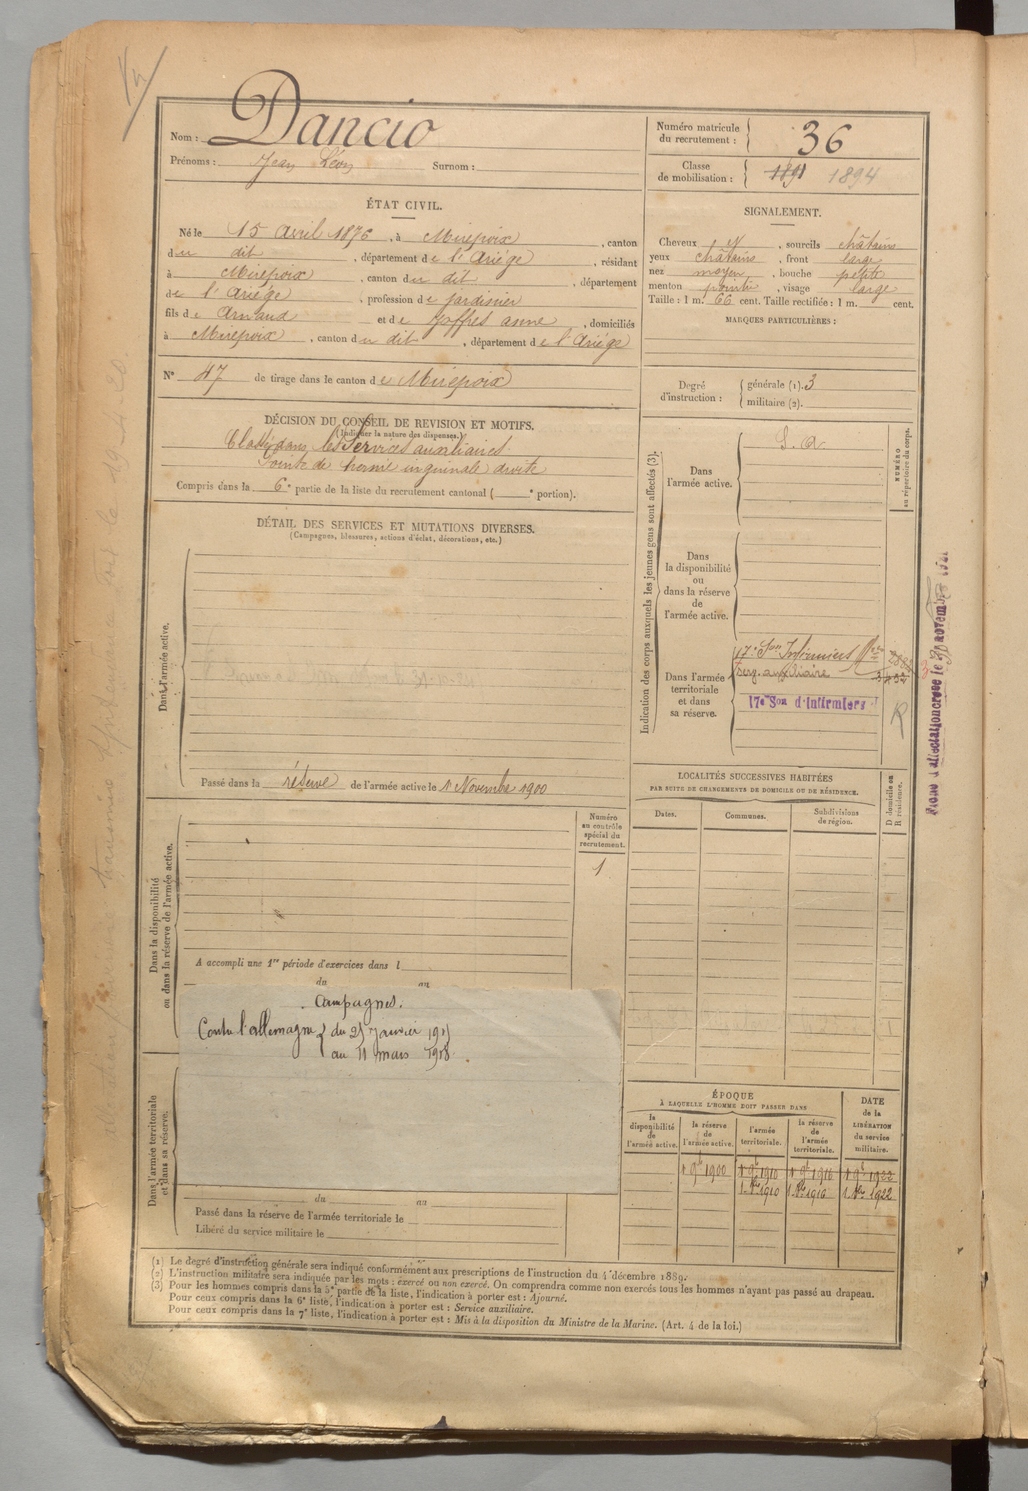 Nom : Dancio
Prénoms : Jean Léon Surnom :
Numéro matricule du recrutement : 36
Classe de mobilisation : 1891 1894
ÉTAT CIVIL.
Né le 15 avril 1876, à Mirepoix, canton
du dit, département de l'Ariége, résidant
à Mirepoix, canton du dit, département
de l'Ariége, profession de jardinier
fils de Arnaud et de Joffres anne, domiciliés
à Mirepoix, canton du dit, département de l'Ariége
N° 47 de tirage dans le canton de Mirepoix
SIGNALEMENT.
Cheveux et, sourcils châtains
yeux châtains, front large
nez moyen, bouche petite
menton pointu, visage large
Taille : 1 m. 66 cent. Taille rectifiée : 1 m. cent.
MARQUES PARTICULIÈRES :
Degré d'instruction : générale (1). 3
militaire (2).
DÉCISION DU CONSEIL DE REVISION ET MOTIFS.
(Indiquer la nature des dispenses.)
Classé dans les Services auxiliaires
Pointe de hernie inguinale droite
Compris dans la 6e partie de la liste du recrutement cantonal ( e portion).
DÉTAIL DES SERVICES ET MUTATIONS DIVERSES.
(Campagnes, blessures, actions d'éclat, décorations, etc.)
Dans l'armée active.
Passé dans la réserve de l'armée active le 1 Novembre 1900
Indication des corps auxquels les jeunes gens sont affectés (3).
NUMÉRO au répertoire du corps.
Dans l'armée active.
S. a
Dans la disponibilité ou dans la réserve de l'armée active.
Dans l'armée territoriale et dans sa réserve.
17e Son Infirmiers
Serv. auxiliaire
17e Son d'Infirmiers
R
LOCALITÉS SUCCESSIVES HABITÉES
PAR SUITE DE CHANGEMENTS DE DOMICILE OU DE RÉSIDENCE.
D domicile ou R résidence.
Dates. Communes. Subdivisions de région.
Dans la disponibilité ou dans la réserve de l'armée active.
Numéro au contrôle spécial du recrutement.
1
A accompli une 1re période d'exercices dans l
du au
Campagnes.
Contre l'allemagne { du 25 Janvier 1915
au 11 mars 1918
Dans l'armée territoriale et dans sa réserve.
du au
Passé dans la réserve de l'armée territoriale le
Libéré du service militaire le
ÉPOQUE
À LAQUELLE L'HOMME DOIT PASSER DANS
la disponibilité de l'armée active.
la réserve de l'armée active.
l'armée territoriale.
la réserve de l'armée territoriale.
DATE de la LIBÉRATION du service militaire.
1 9bre 1900 1 9bre 1910 1 9bre 1916 1 9bre 1922
1 Nbre 1910 1 Nbre 1916 1 Nbre 1922
(1) Le degré d'instruction générale sera indiqué conformément aux prescriptions de l'instruction du 4 décembre 1889.
(2) L'instruction militaire sera indiquée par les mots : exercé ou non exercé. On comprendra comme non exercés tous les hommes n'ayant pas passé au drapeau.
(3) Pour les hommes compris dans la 5e partie de la liste, l'indication à porter est : Ajourné.
Pour ceux compris dans la 6e liste, l'indication à porter est : Service auxiliaire.
Pour ceux compris dans la 7e liste, l'indication à porter est : Mis à la disposition du Ministre de la Marine. (Art. 4 de la loi.)